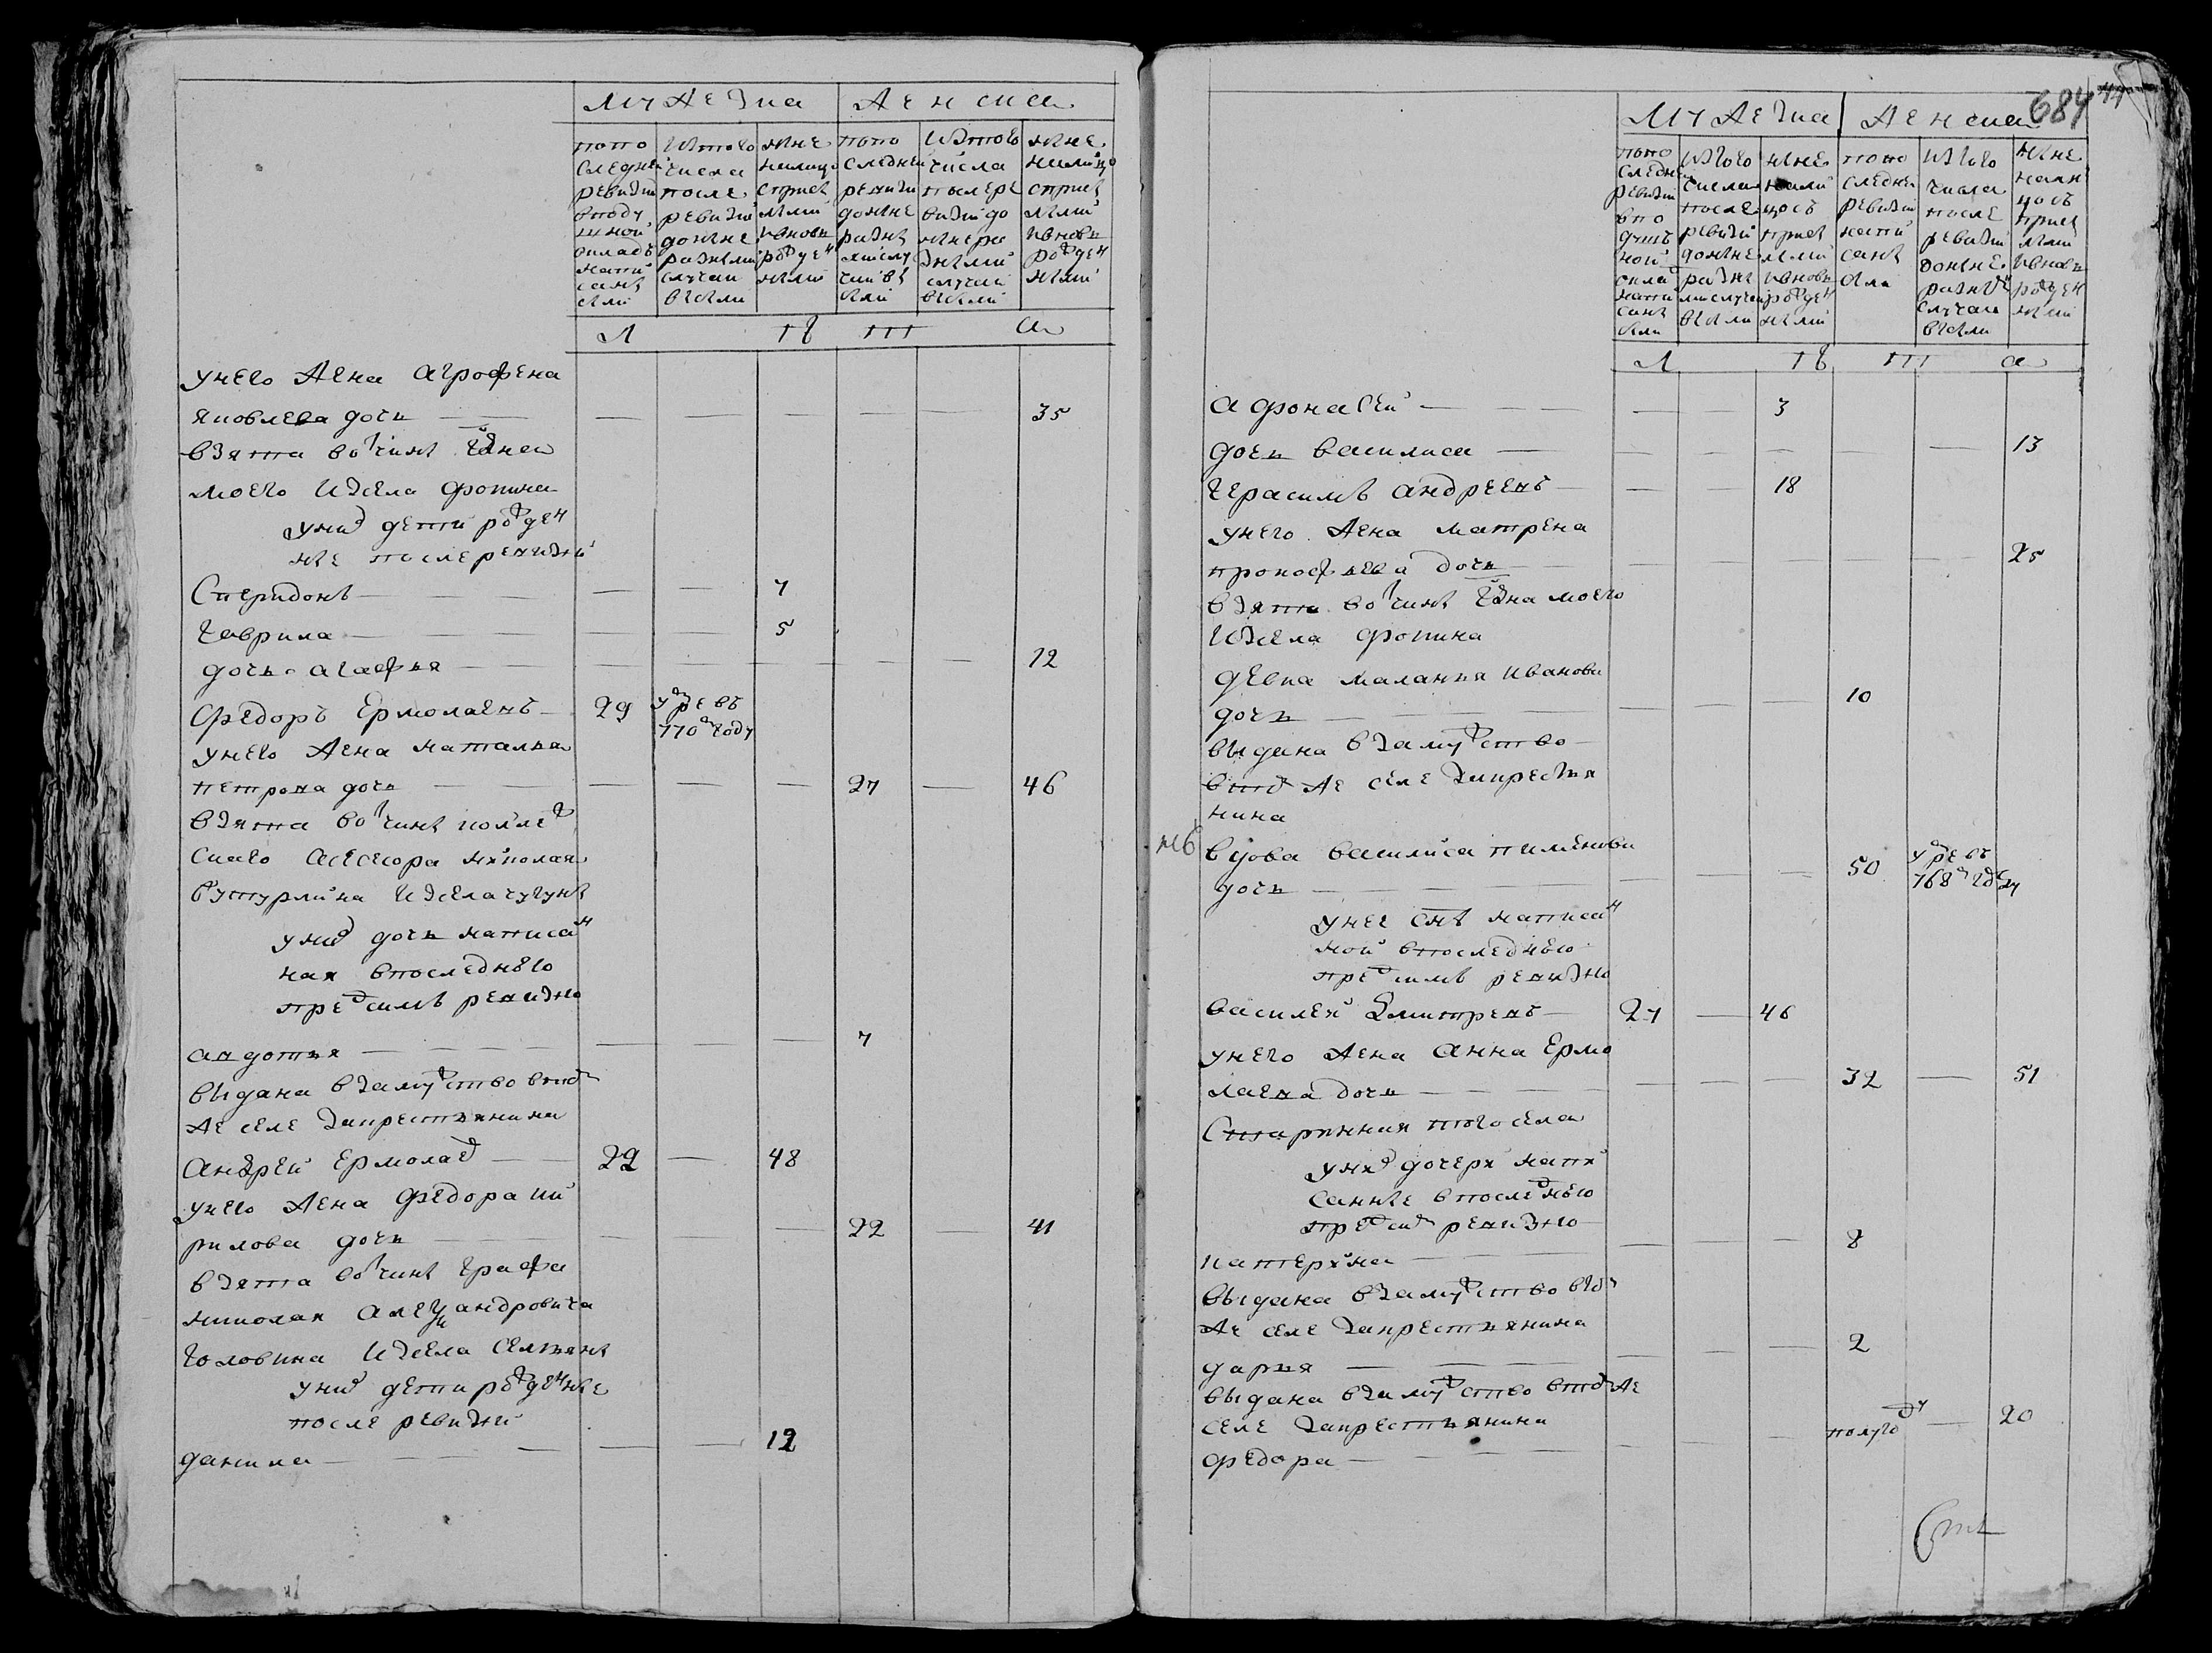 мужеска
женска
попо
следней
ревизии
вподу
шной
окладъ
напи
саны
были
изтого
числа
после
ревизии
доныне
разными
случаи
выбыли
ныне
налицо
сприбы
лыми
ивновь
рожден
ными
попо
следней
ревизии
изтого
числа
ныне
налицо
сприбы
лыми
ивновь
рожден
ными
Л тъ
т а
унего жена агрофена
яковлева дочь — — — — — — 35
взята вотчины
моего изсела фокина
уних дети рожден
ные после ревизии
Спиридонъ — — — 7
гаврила — — — 5
дочь агафья — — — — — — 12
Федоръ Ермолаевъ — 29 умре въ
770м году
унего жена наталья
петрова дочь — — — — 27 — 46
взята вотчины коллеж
скаго асесора николая
бутурлина изсела чугуны
уних дочь написан
ная впоследнюю
предсимъ ревизию
авдотья — — — — 7
выдана взамужство втом
же селе закрестьянина
андрей ермолаев — 22 — 48
унего жена федора ки
рилова дочь — — — — 22 — 41
взята вотчины графа
николая александровича
головина изсела
уних дети рожденные
после ревизии
данила — — — 12
684
мужеска
женска
попо
следней
ревизии
впо
душ
ной
окла
напи
саны
были
изтого
числа
после
ревизии
доныне
разны
ми случаи
выбыли
ныне
нали
цось
прибы
лыми
ивновь
рожден
ными
попо
следней
ревизии
напи
саны
были
изтого
числа
после
ревизии
доныне
разным
случаи
выбыли
ныне
нали
цось
прибы
лыми
ивновь
рожден
ными
Л тъ
т а
афонасей — — — 3
дочь василиса — — — — — 13
герасимъ андреевъ — — — 18
унего жена матрена
прокофьева дочь — — — — — 25
взята вотчины моего
изсела фокина
девка маланья иванова
дочь — — — — 10
выдана взамужство
втом же селе закрестья
нина
вдова василиса пименова
дочь — — — — 50 умре въ
768м году
унее сынъ написан
ной впоследнюю
предсимъ ревизию
василей дмитревъ — 27 — 46
унего жена анна ермо
лаева дочь — — — — 32 — 51
Старинная того села
уних дочери напи
санные впоследнюю
предсим ревизию
катерина — — — — 8
выдана взамужство втом
же селе закрестьянина
дарья — — — — 2
выдана взамужство втом же
селе закрестьянина
федора — — — — полугоду — 20